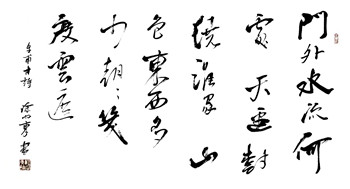 門外水流何
處天邊樹
繞誰家山
色東西多
少朝々幾
度雲遮
皇甫冉詩 書